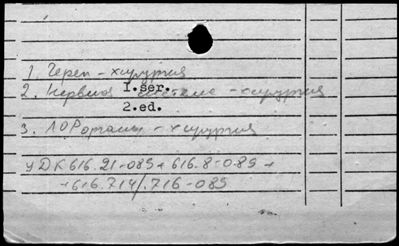 1. Череп - хирургия
2. Нервная система - хирургия
I.ser.
2.ed.
3. ЛОРорганы - хирургия
УДК 616.21-089+616.8-089+
+616.714/.716-089